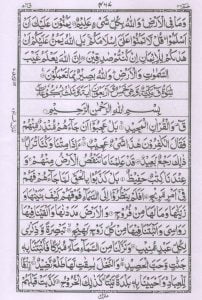 وَمَا فِي الْاَرْضِ وَاللّٰهُ بِكُلِّ شَيْءٍ عَلِيْمٌ يَمُنُّوْنَ عَلَيْكَ اَنْ
اَسْلَمُوْا قُلْ لَّا تَمُنُّوْا عَلَيَّ اِسْلَامَكُمْ بَلِ اللّٰهُ يَمُنُّ عَلَيْكُمْ اَنْ
هَدٰىكُمْ لِلْاِيْمَانِ اِنْ كُنْتُمْ صٰدِقِيْنَ اِنَّ اللّٰهَ يَعْلَمُ غَيْبَ
السَّمٰوٰتِ وَالْاَرْضِ وَاللّٰهُ بَصِيْرٌ بِمَا تَعْمَلُوْنَ
بِسْمِ اللّٰهِ الرَّحْمٰنِ الرَّحِيْمِ
قٓ وَالْقُرْاٰنِ الْمَجِيْدِ بَلْ عَجِبُوْٓا اَنْ جَآءَهُمْ مُّنْذِرٌ مِّنْهُمْ
فَقَالَ الْكٰفِرُوْنَ هٰذَا شَيْءٌ عَجِيْبٌ ءَاِذَا مِتْنَا وَكُنَّا تُرَابًا
ذٰلِكَ رَجْعٌ بَعِيْدٌ قَدْ عَلِمْنَا مَا تَنْقُصُ الْاَرْضُ مِنْهُمْ وَ
عِنْدَنَا كِتٰبٌ حَفِيْظٌ بَلْ كَذَّبُوْا بِالْحَقِّ لَمَّا جَآءَهُمْ فَهُمْ فِيْٓ
اَمْرٍ مَّرِيْجٍ اَفَلَمْ يَنْظُرُوْٓا اِلَى السَّمَآءِ فَوْقَهُمْ كَيْفَ بَنَيْنٰهَا وَ
زَيَّنّٰهَا وَمَا لَهَا مِنْ فُرُوْجٍ وَالْاَرْضَ مَدَدْنٰهَا وَاَلْقَيْنَا فِيْهَا
رَوَاسِيَ وَاَنْۢبَتْنَا فِيْهَا مِنْ كُلِّ زَوْجٍۢ بَهِيْجٍ تَبْصِرَةً وَّذِكْرٰى
لِكُلِّ عَبْدٍ مُّنِيْبٍ وَنَزَّلْنَا مِنَ السَّمَآءِ مَآءً مُّبٰرَكًا فَاَنْۢبَتْنَا بِهٖ
جَنّٰتٍ وَّحَبَّ الْحَصِيْدِ وَالنَّخْلَ بٰسِقٰتٍ لَّهَا طَلْعٌ نَّضِيْدٌ
رِّزْقًا لِّلْعِبَادِ وَاَحْيَيْنَا بِهٖ بَلْدَةً مَّيْتًا كَذٰلِكَ الْخُرُوْجُ كَذَّبَتْ قَبْلَهُمْ